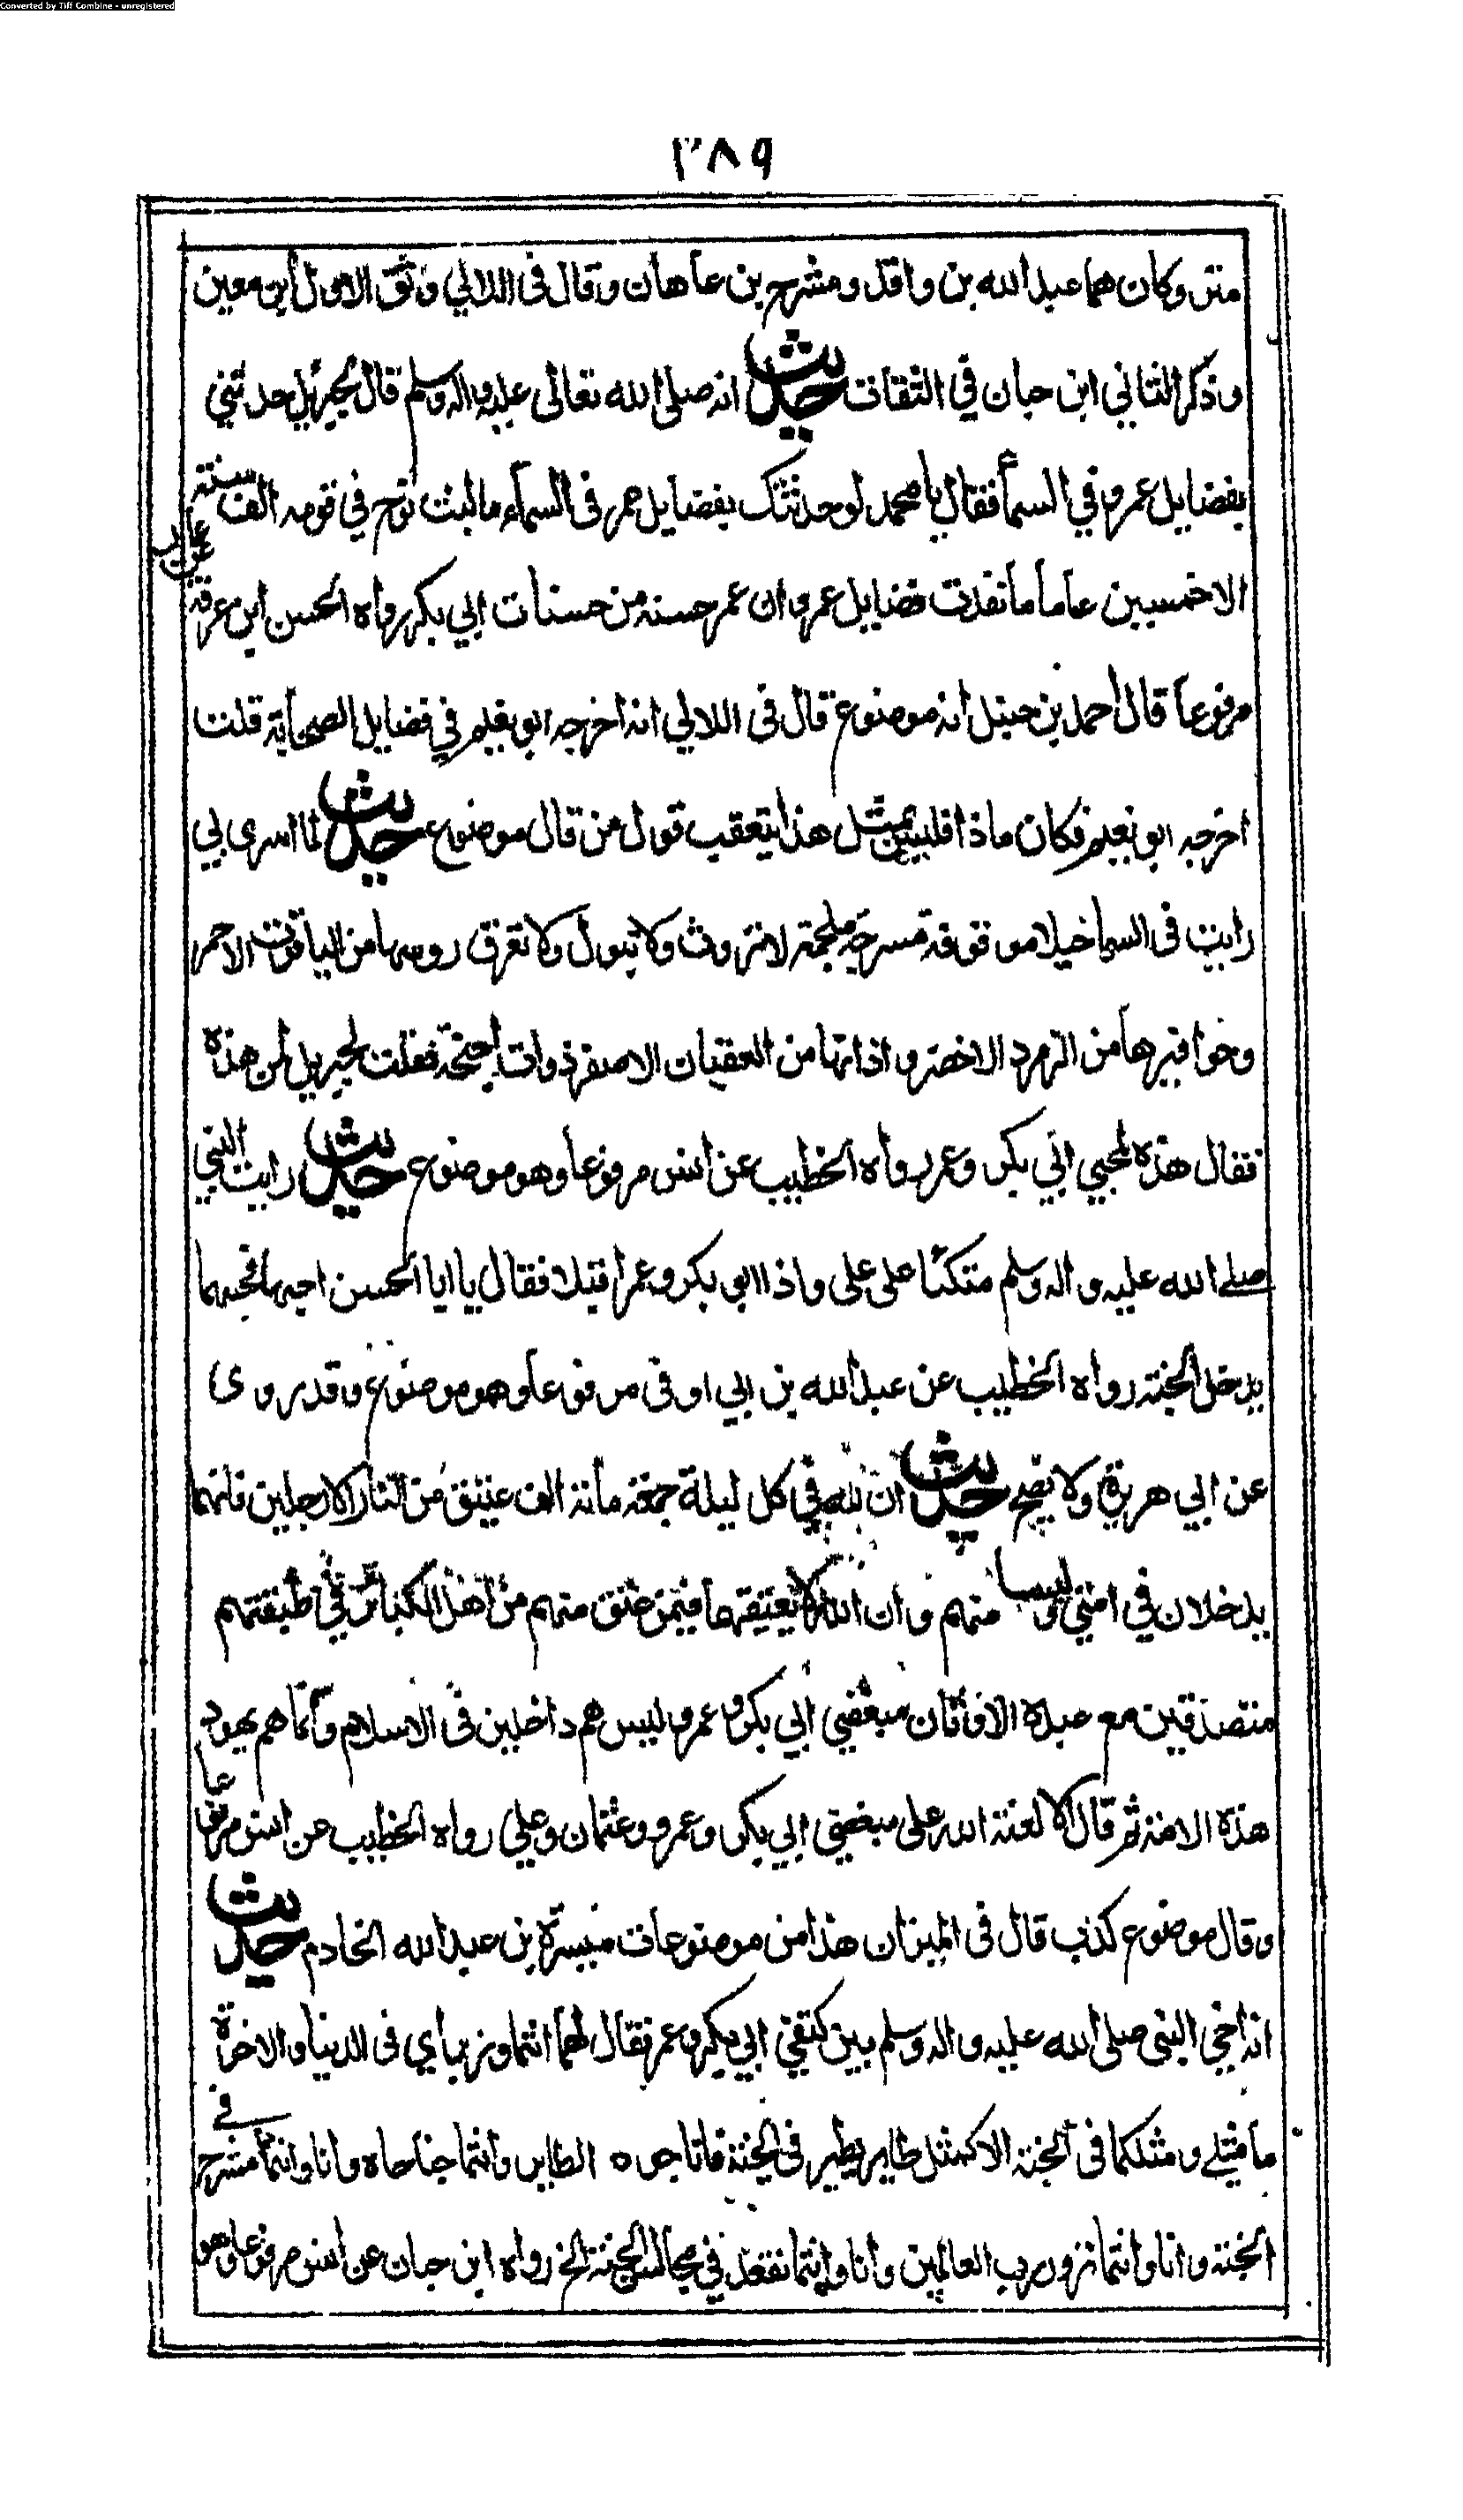 Converted by Tiff Combine - unregistered
٣٨٩
متروكان هما عبد الله بن واقد ومشرح بن عاهان وقال في اللالي وثق الاول ابن معين
وذكر الثاني ابن حبان في الثقات حديث انه صلى الله تعالى عليه واله وسلم قال لجبريل حدثني
بفضايل عمر في السما فقال يا محمد لو حدثتك بفضايل عمر في السماء ما لبث نوح في قومه الف سنة
الا خمسين عاما ما نفدت فضايل عمر وان عمر حسنة من حسنات ابي بكر رواه الحسن ابن عرفة
مرفوعا قال احمد بن حنبل انه موضوع قال في اللالي انه اخرجه ابو نعيم في فضايل الصحابة قلت
اخرجه ابو نعيم فكان ماذا فليس بمثل هذا يتعقب قول من قال موضوع حديث لما اسرى بي
رايت في السما خيلا موقوفة مسرجة ملجمة لا تروث ولا تبول ولا تعرق روسها من الياقوت الاحمر
وحوافيرها من الزمرد الاخضر واذانها من العقيان الاصفر ذوات اجنحة فقلت لجبريل لمن هذه
فقال هذه لمحبي ابي بكر وعمر رواه الخطيب عن انس مرفوعا وهو موضوع حديث رايت النبي
صلى الله عليه واله وسلم متكئا على علي واذا ابو بكر وعمر اقبلا فقال يا ابا الحسن احبهما فبحبهما
يدخل الجنة رواه الخطيب عن عبد الله بن ابي اوفى مرفوعا وهو موضوع وقد روى
عن ابي هريرة ولا يصح حديث ان لله في كل ليلة جمعة مائة الف عتيق من النار الا رجلين فانهما
يدخلان في امتي وليسا منهم وان الله لا يعتقهما فيمن عتق منهم من اهل الكبائر في طبقتهم
متصدقين مع عبدة الاوثان مبغضي ابي بكر وعمر وليس هم داخلين في الاسلام وانما هم يهود
هذه الامة ثم قال الا لعنة الله على مبغضي ابي بكر وعمر وعثمان وعلي رواه الخطيب عن انس مرفوعا
وقال موضوع كذب قال في الميزان هذا من موضوعات ميسرة بن عبد الله الخادم حديث
النبي صلى الله عليه واله وسلم بين كتفي ابي بكر وعمر فقال لهما انتما وزيراي في الدنيا والاخرة
ما مثلي ومثلكما في الجنة الا كمثل طاير يطير في الجنة فانا جوه الطاير وانتما جناحاه وانا وانتما نسرح في
الجنة وانا وانتما نزور رب العالمين وانا وانتما نقعد في مجالس الجنة الخ رواه ابن حبان عن انس مرفوعا وهو